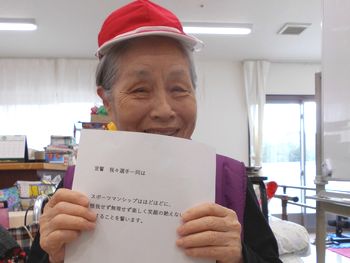 宣誓　我々選手一同は
スポーツマンシップはほどほどに、
怪我せず無理せず楽しく笑顔の絶えない
することを誓います。